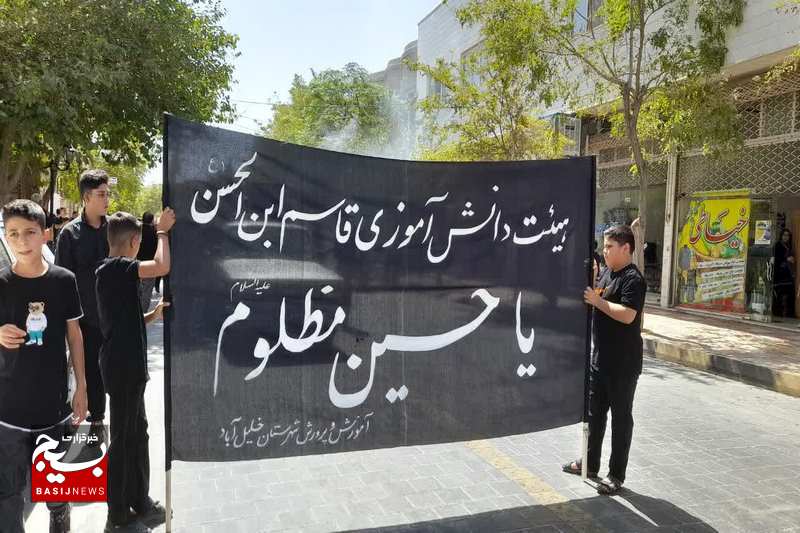 هیئت دانش آموزی قاسم ابن الحسن (ع)
یا حسین مظلوم علیه السلام
آموزش و پرورش شهرستان خلیل آباد
خیاطی
خبرگزاری
بسیج
BASIJNEWS